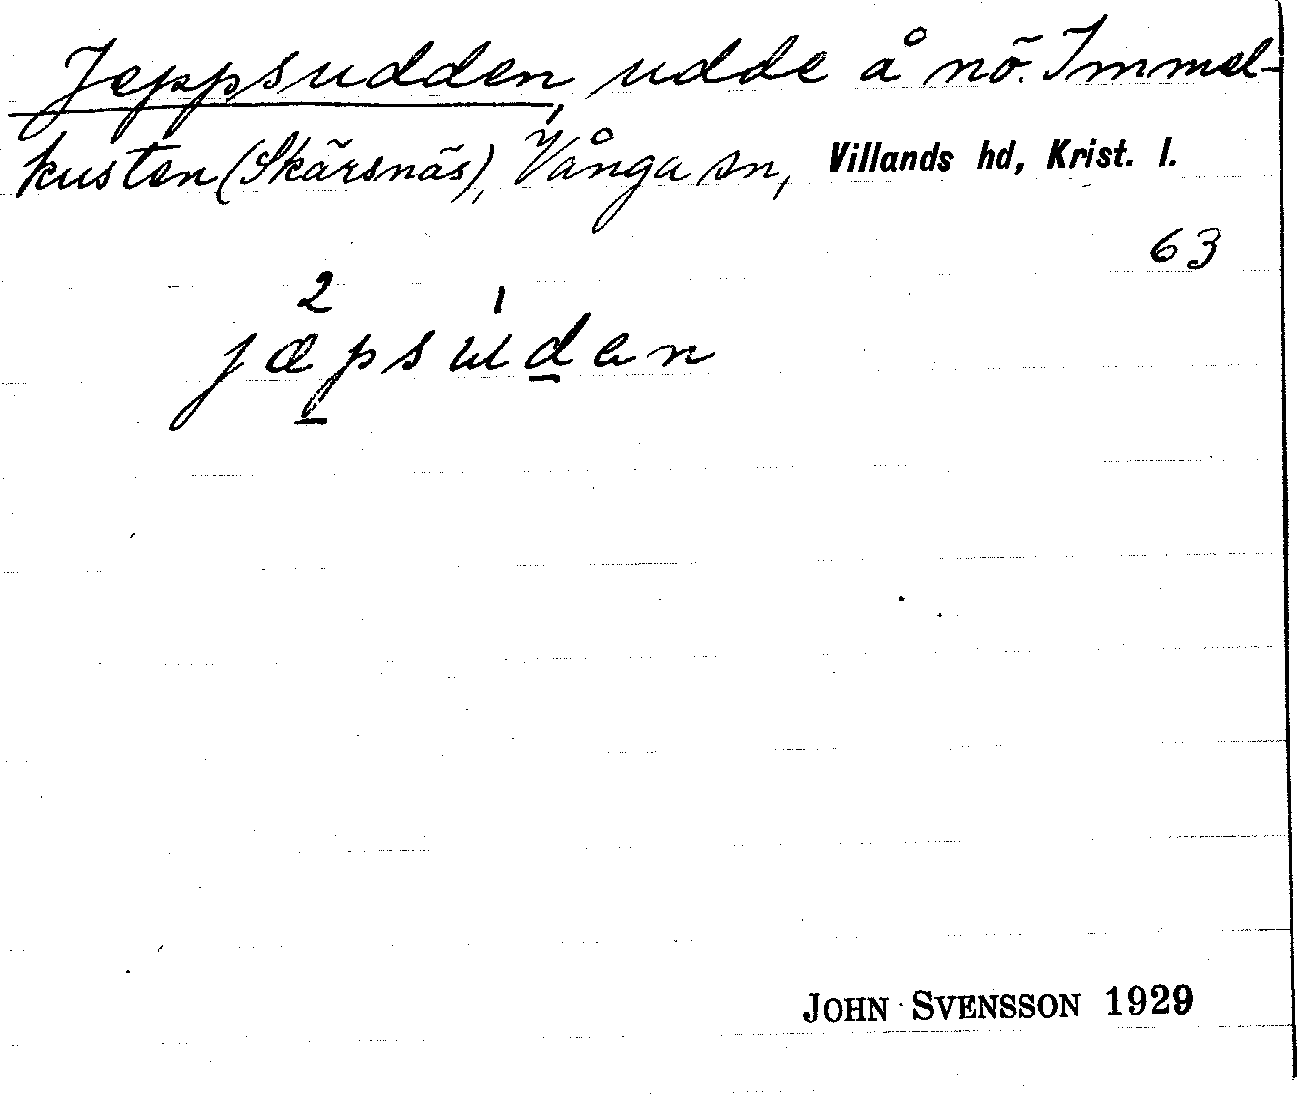 Jeppsudden, udde å nö. Immel-
kusten (Skärsnäs), Vånga sn, Villands hd, Krist. l.
63
2 1
jæpsuden
JOHN SVENSSON 1929